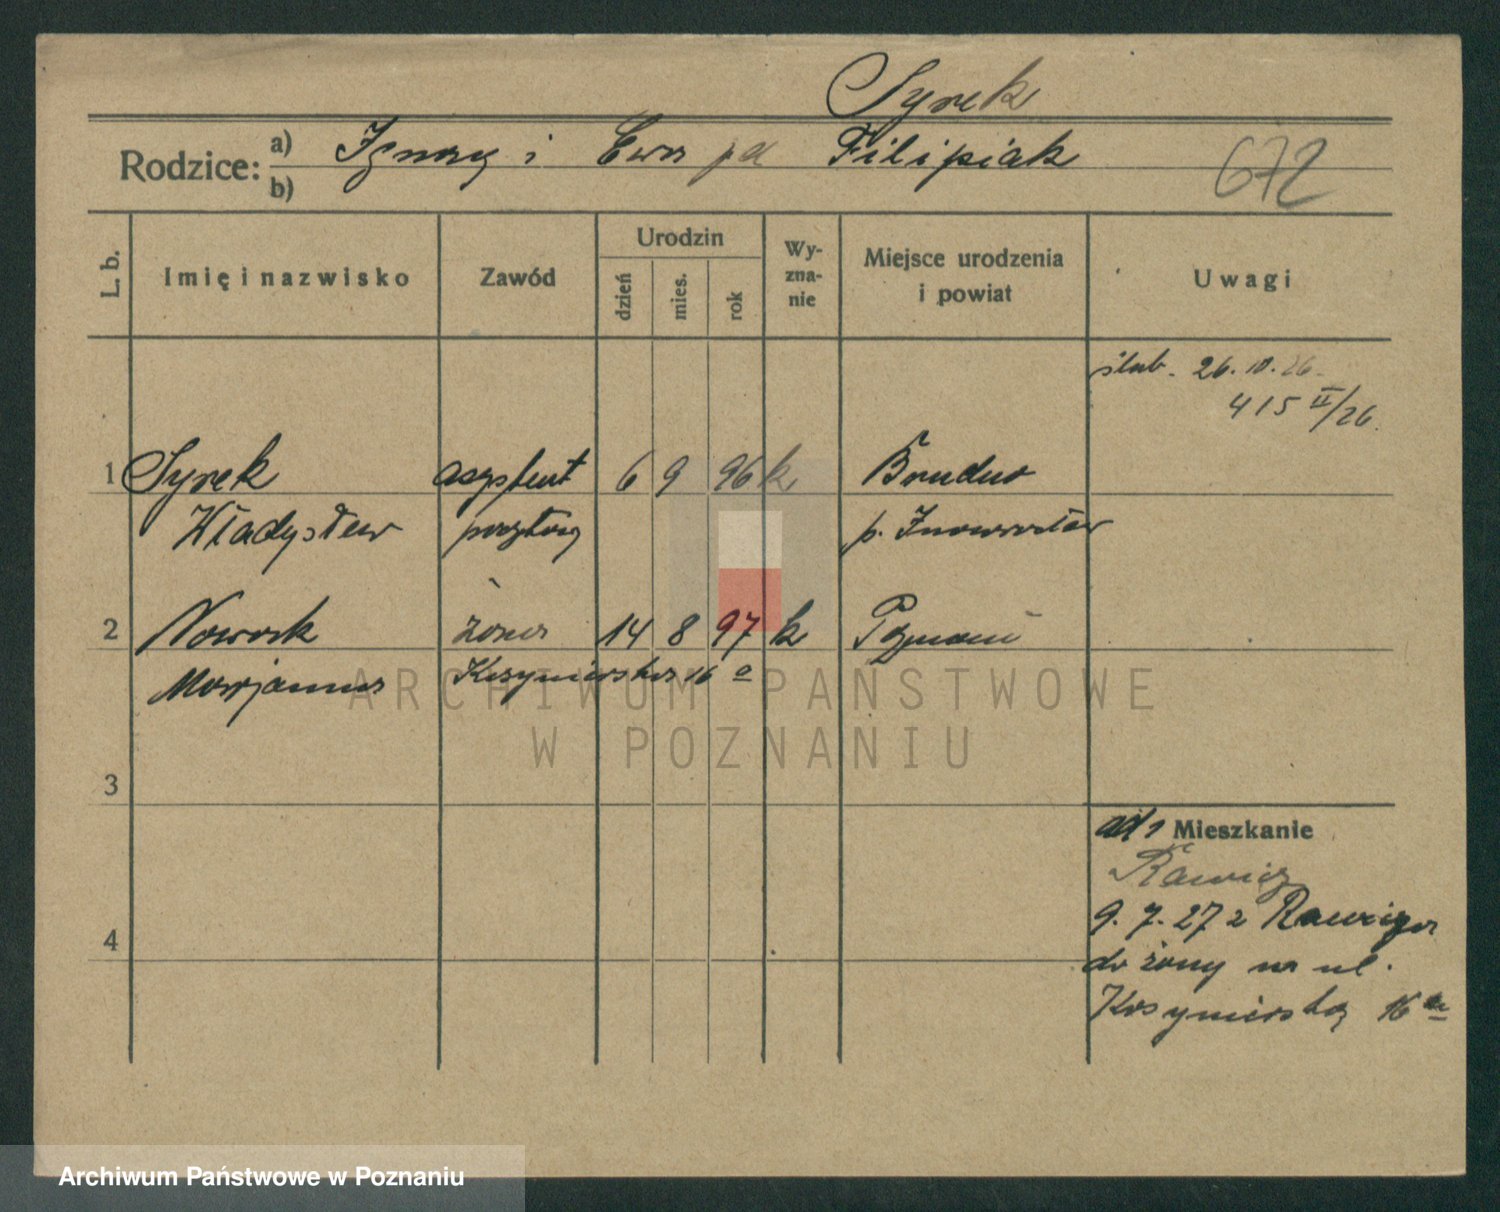 Syrek
Rodzice: a) Ignacy i Ewa pd Filipiak
b)
672
L. b.
Imię i nazwisko
Zawód
Urodzin
dzień
mies.
rok
Wy-
zna-
nie
Miejsce urodzenia
i powiat
Uwagi
ślub. 26. 10. 26.
415 II/26.
1 Syrek asystent 6 9 96 k Brudno
Władysław pocztowy p. Inowrocław
2 Nowak żona 14 8 97 k Poznań
Marjanna 16 a
3
ad 1 Mieszkanie
Rawicz
9. 7. 27 z Rawicza
4
do żony na ul.
16 a
ARCHIWUM PAŃSTWOWE
W POZNANIU
Archiwum Państwowe w Poznaniu